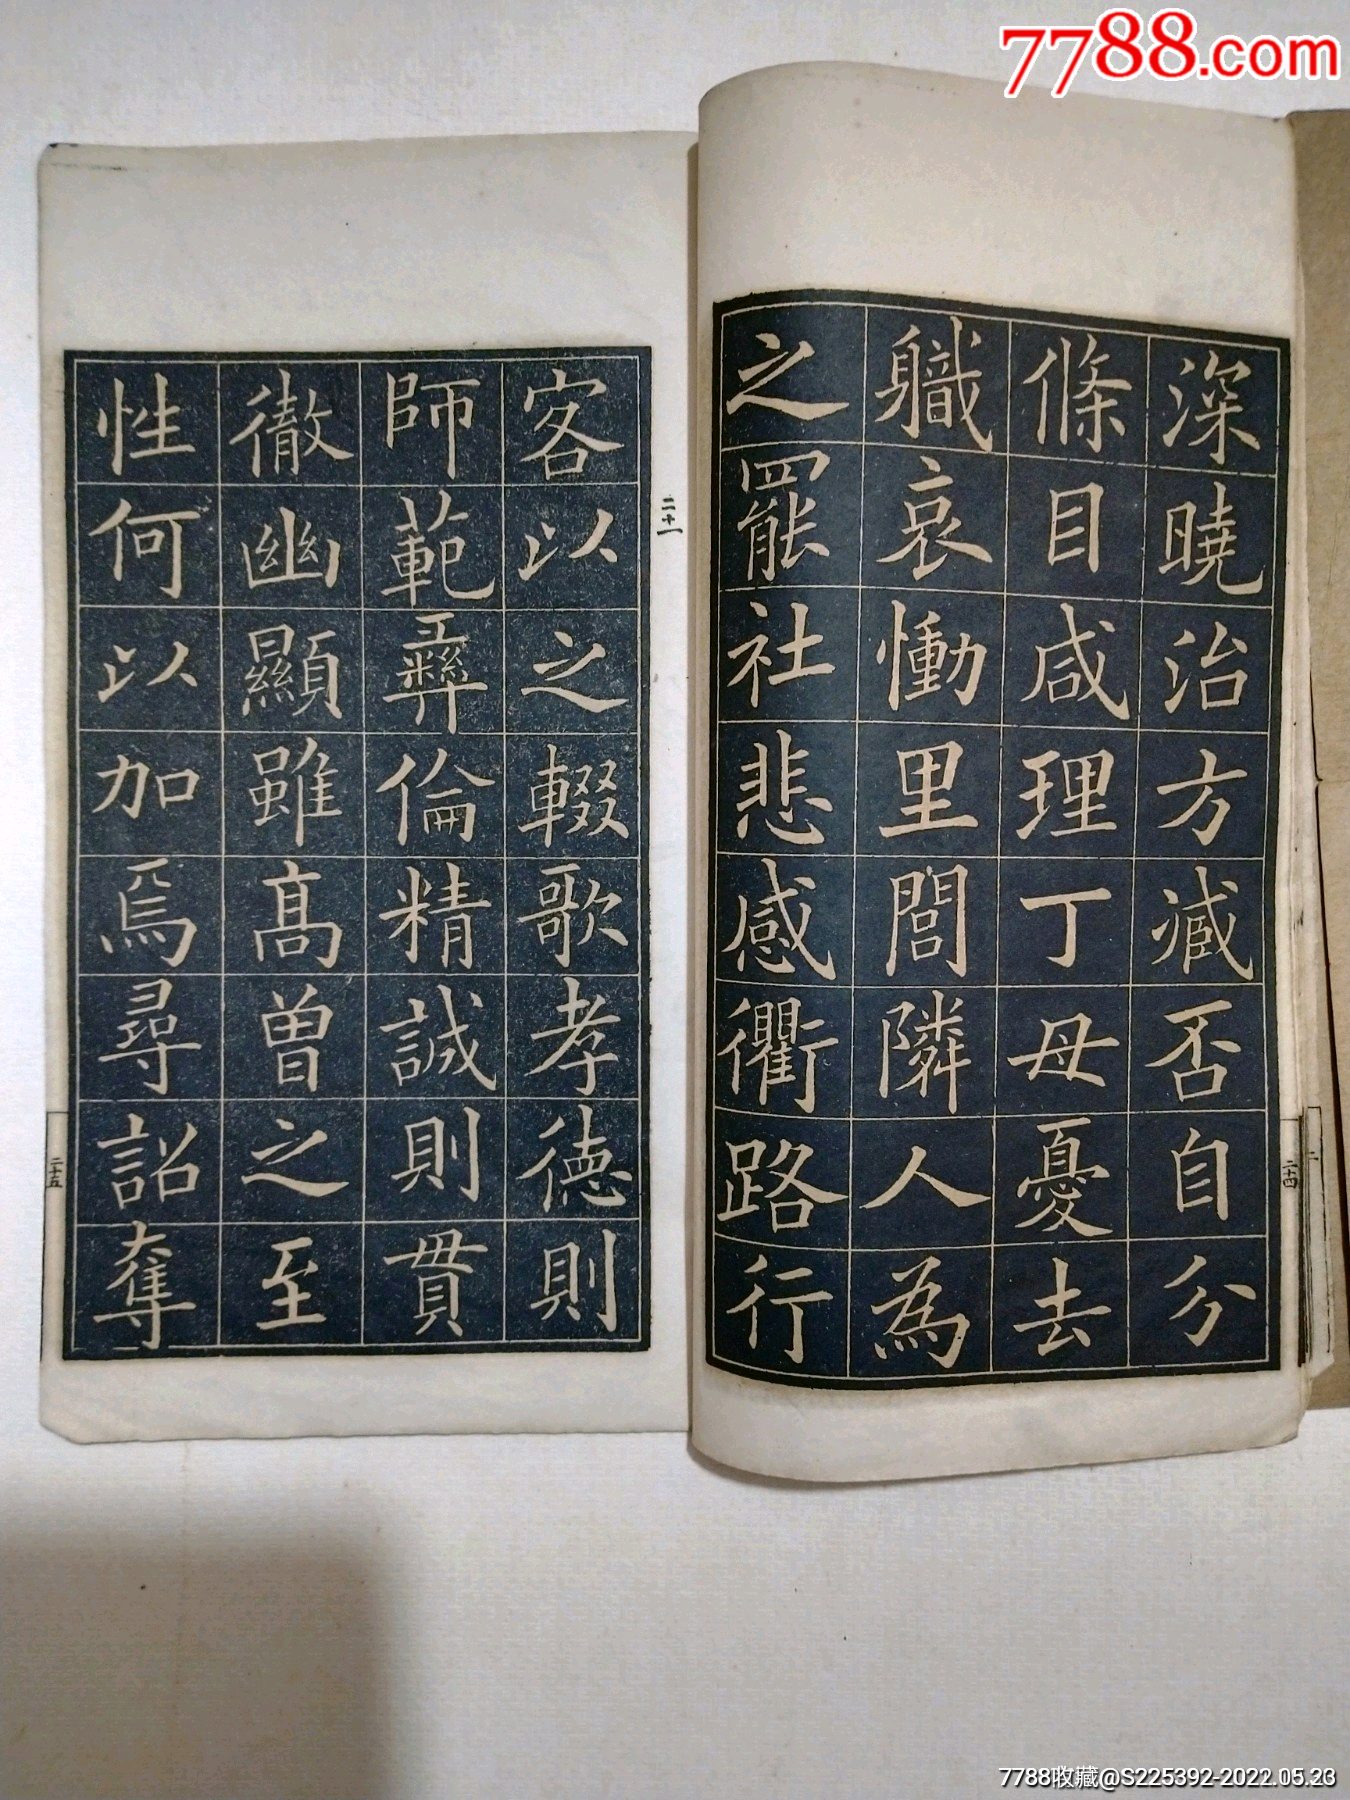 7788.com
深曉治方減否自分
條目咸理丁母憂去
軄哀慟里閭隣人為
之罷社悲感衢路行
二十四
二十一
客以之輟歌孝德則
師範彝倫精誠則貫
徹幽顯雖高曾之至
性何以加焉尋詔奪
二十五
7788收藏@S225392-2022.05.23